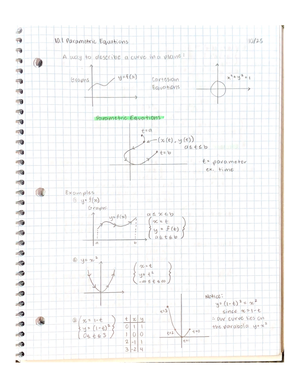 10.1 Parametric Equations
10/25
A way to describe a curve in a plane!
Graphs
y=f(x)
Cartesian
Equations
x²+y²=1
Parametric Equations
t=a
(x(t), y(t))
a≤t≤b
t=b
t= parameter
ex. time
Examples
① y=f(x)
Graphs
y=f(x)
a≤x≤b
x=t
y=f(t)
a≤t≤b
② y=x²
x=t
y=t²
-∞<t<∞
③ x=1-t
y=(1-t)²
0≤t≤3
t x y
0 1 1
1 0 0
2 -1 1
3 -2 4
t=3
t=2
t=0
t=1
Notice:
y=(1-t)²=x²
since x=1-t
our curve lies on
the parabola y=x²